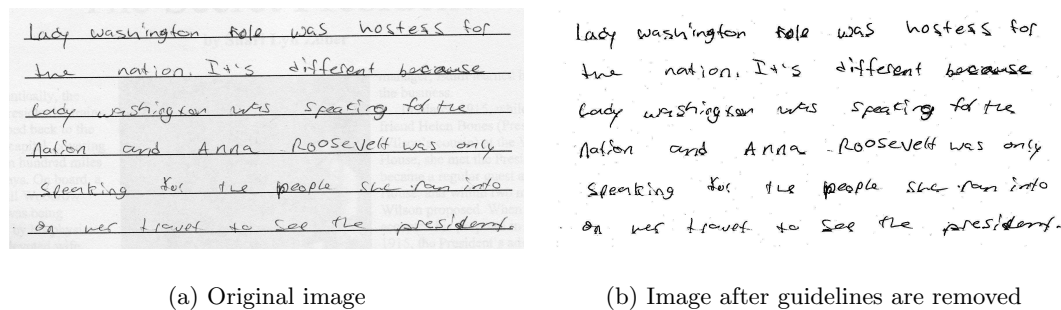 Lady washington role was hostess for
the nation. It's different because
Lady washington was speaking for the
Nation and Anna Roosevelt was only
Speaking for the people she ran into
on her travel to see the president.
(a) Original image
Lady washington role was hostess for
the nation. It's different because
Lady washington was speaking for the
Nation and Anna Roosevelt was only
Speaking for the people she ran into
on her travel to see the president.
(b) Image after guidelines are removed